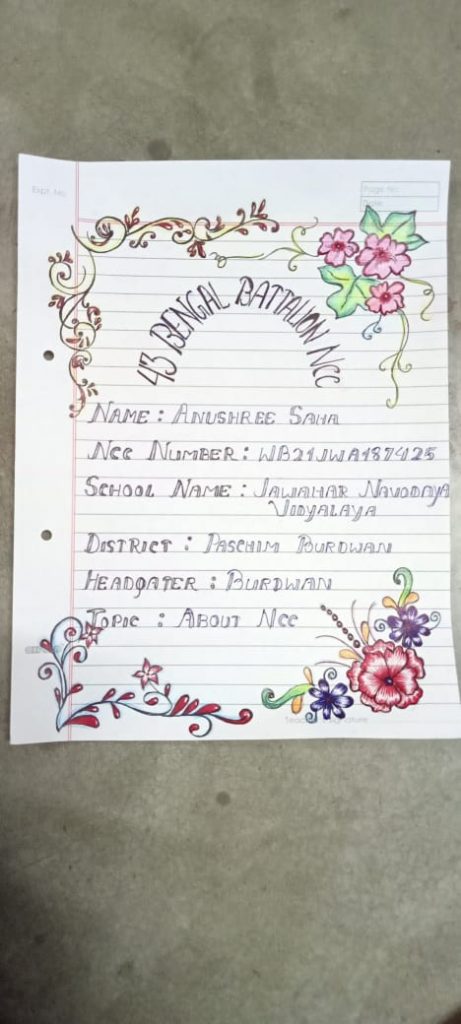 Expt. No.
Page No.
Date
43 BENGAL BATTALION NCC
NAME : ANUSHREE SAHA
NCC NUMBER : WB21JWA187425
SCHOOL NAME : JAWAHAR NAVODAYA
VIDYALAYA
DISTRICT : PASCHIM BURDWAN
HEADQATER : BURDWAN
TOPIC : ABOUT NCC